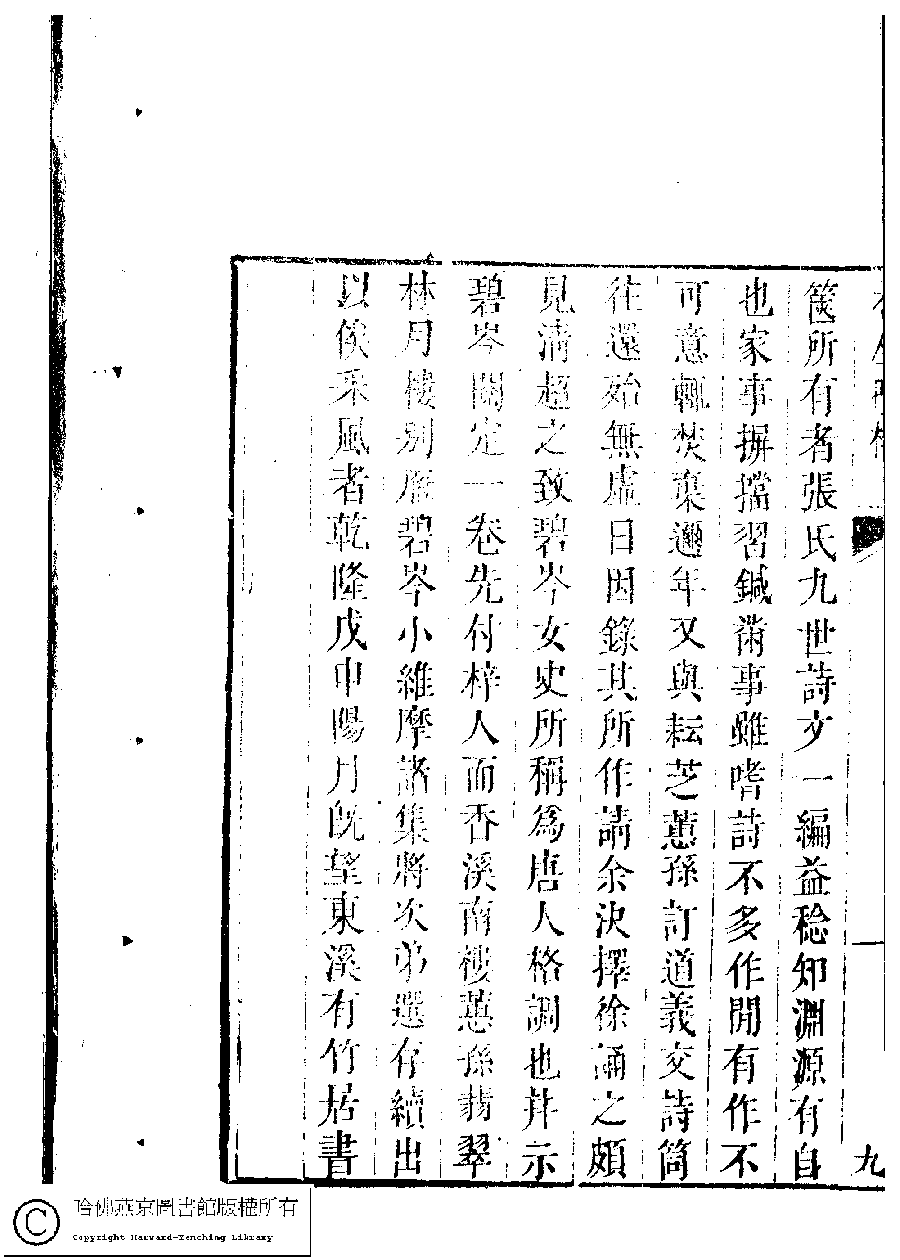 篋所有者張氏九世詩文一編益稔知淵源有自
也家事摒擋習鍼黹事雖嗜詩不多作閒有作不
可意輒焚棄邇年又與耘芝蕙孫訂道義交詩筒
往還殆無虛日因錄其所作請余決擇徐誦之頗
見清超之致碧岑女史所稱為唐人格調也幷示
碧岑閱定一卷先付梓人而香溪南樓蕙孫翡翠
林月樓別雁碧岑小維摩諸集將次弟選存續出
以俟采風者乾隆戊申陽月旣望東溪有竹居書
九
哈佛燕京圖書館版權所有
Copyright Harvard-Yenching Library